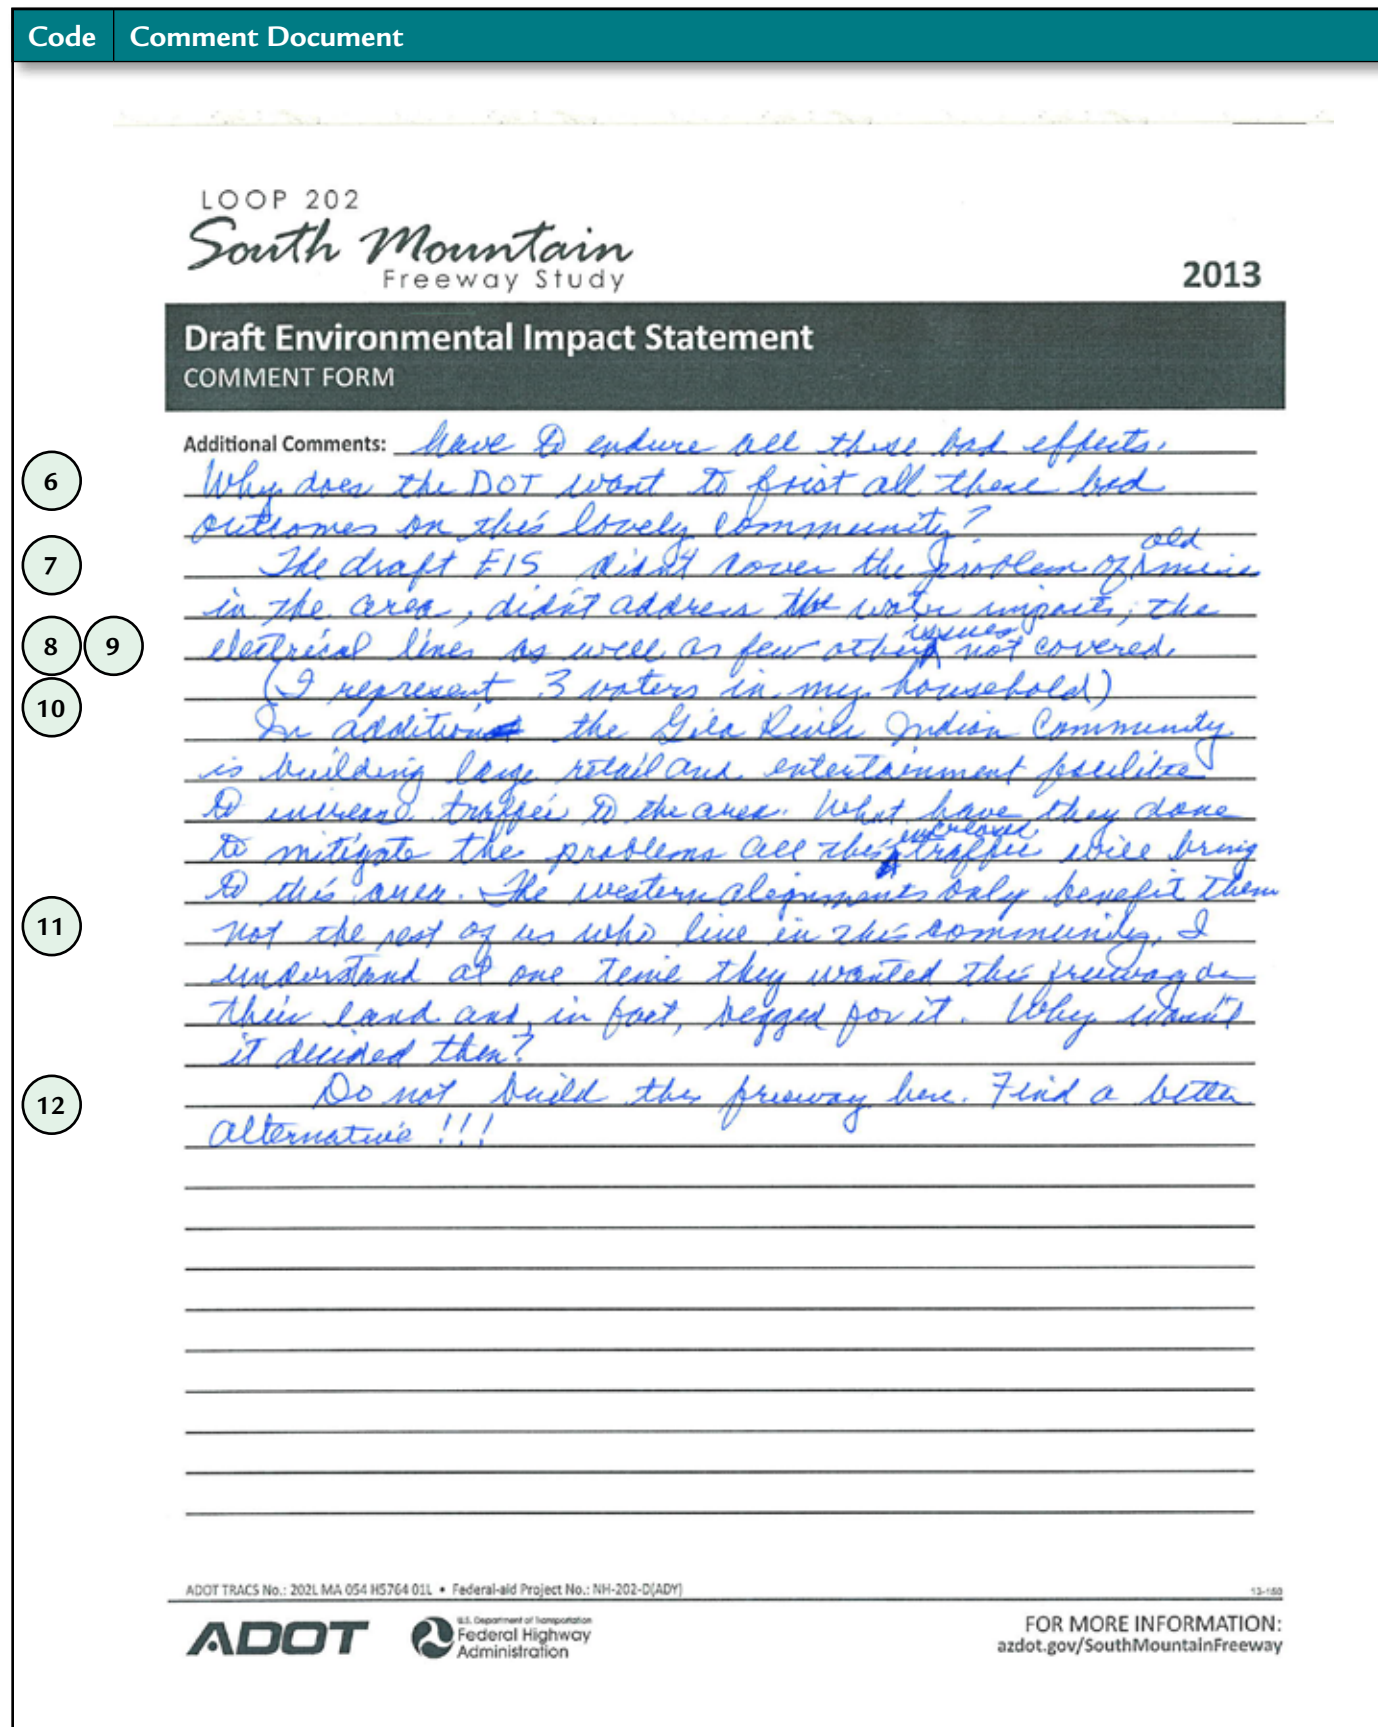 Code Comment Document
LOOP 202
South Mountain
Freeway Study
2013
Draft Environmental Impact Statement
COMMENT FORM
Additional Comments: have to endure all these bad effects.
6 Why does the DOT want to foist all these bad
outcomes on this lovely community?
7 The draft EIS didn't cover the problem of old mines
in the area, didn't address the water impacts, the
8 9 electrical lines as well as few other issues not covered.
(I represent 3 voters in my household)
10 In addition the Gila River Indian Community
is building large retail and entertainment facilities
to increase traffic to the area. What have they done
to mitigate the problems all this increased traffic will bring
to this area. The western alignments only benefit them
11 not the rest of us who live in this community. I
understand at one time they wanted this freeway on
their land and, in fact, begged for it. Why wasn't
it decided then?
12 Do not build the freeway here. Find a better
alternative !!!
ADOT TRACS No.: 202L MA 054 H5764 01L • Federal-aid Project No.: NH-202-D(ADY)
13-150
ADOT
U.S. Department of Transportation
Federal Highway
Administration
FOR MORE INFORMATION:
azdot.gov/SouthMountainFreeway